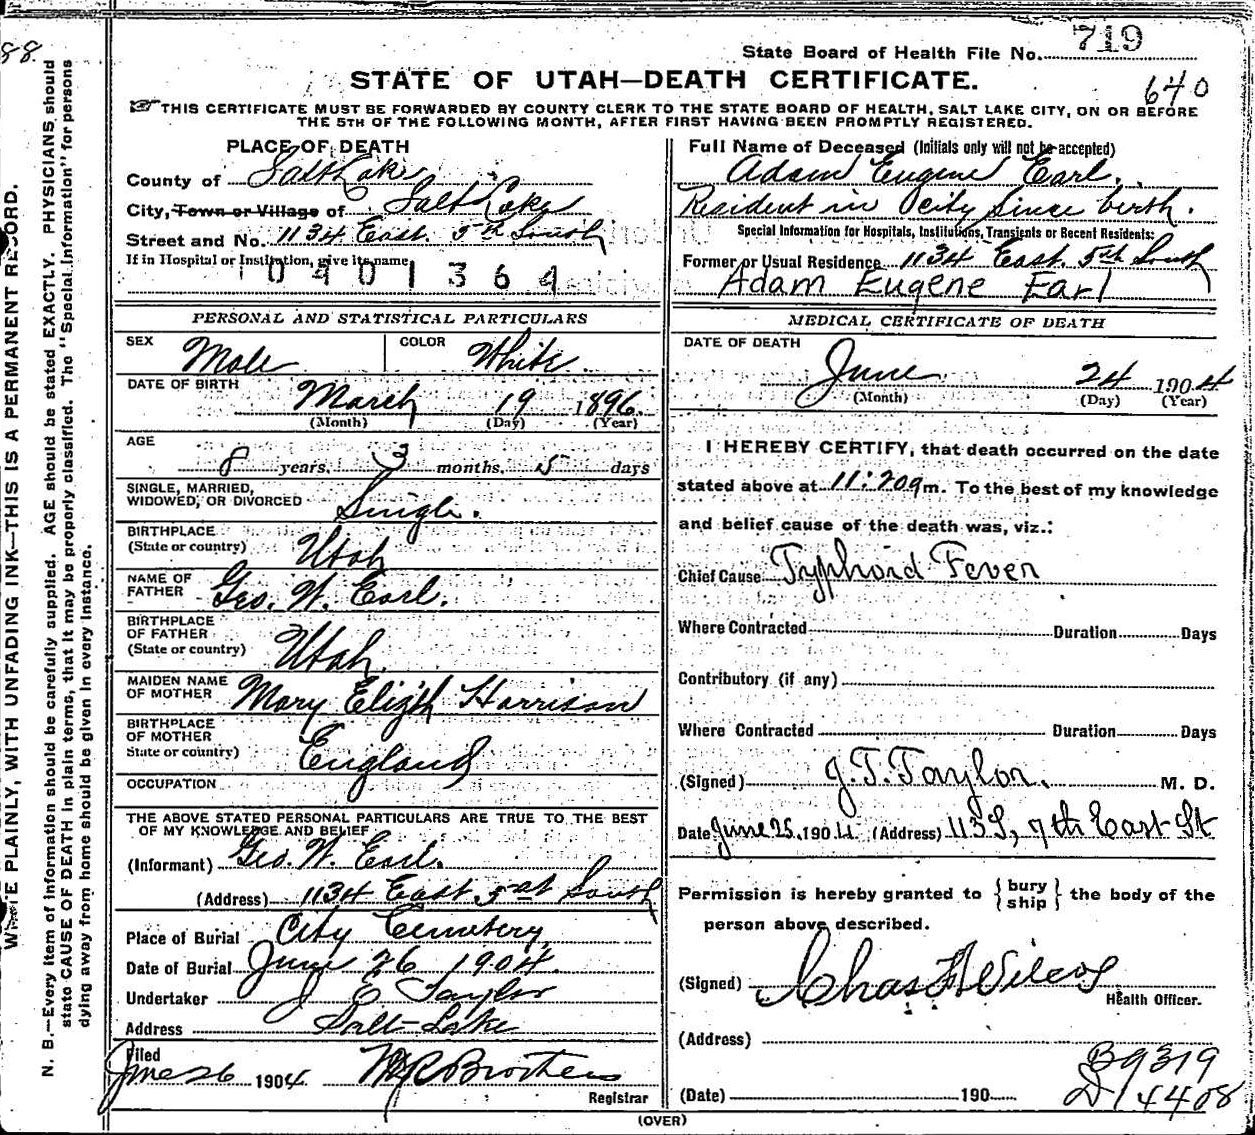 88.
719
State Board of Health File No.
STATE OF UTAH—DEATH CERTIFICATE.
640
☞ THIS CERTIFICATE MUST BE FORWARDED BY COUNTY CLERK TO THE STATE BOARD OF HEALTH, SALT LAKE CITY, ON OR BEFORE
THE 5TH OF THE FOLLOWING MONTH, AFTER FIRST HAVING BEEN PROMPTLY REGISTERED.
PLACE OF DEATH
County of Salt Lake
City, Town or Village of Salt Lake
Street and No. 1134 East. 5th South
If in Hospital or Institution, give its name
0401364
Full Name of Deceased (Initials only will not be accepted)
Adam Eugene Earl.
Resident in city since birth.
Special Information for Hospitals, Institutions, Transients or Recent Residents:
Former or Usual Residence 1134 East. 5th South
Adam Eugene Earl
PERSONAL AND STATISTICAL PARTICULARS
SEX Male COLOR White.
DATE OF BIRTH March 19 1896.
(Month) (Day) (Year)
AGE
8 years, 3 months, 5 days
SINGLE, MARRIED,
WIDOWED, OR DIVORCED Single.
BIRTHPLACE
(State or country) Utah
NAME OF
FATHER Geo. W. Earl.
BIRTHPLACE
OF FATHER
(State or country) Utah.
MAIDEN NAME
OF MOTHER Mary Elizth Harrison
BIRTHPLACE
OF MOTHER
State or country) England
OCCUPATION
THE ABOVE STATED PERSONAL PARTICULARS ARE TRUE TO THE BEST
OF MY KNOWLEDGE AND BELIEF
(Informant) Geo. W. Earl.
(Address) 1134 East. 5 at South
Place of Burial City Cemetery,
Date of Burial June 26 1904.
Undertaker J E Taylor
Address Salt-Lake
Filed
June 26 1904.
Registrar
MEDICAL CERTIFICATE OF DEATH
DATE OF DEATH
June 24 1904
(Month) (Day) (Year)
I HEREBY CERTIFY, that death occurred on the date
stated above at 11:20 a m. To the best of my knowledge
and belief cause of the death was, viz.:
Chief Cause Typhoid Fever
Where Contracted Duration Days
Contributory (if any)
Where Contracted Duration Days
(Signed) J.T. Taylor. M. D.
Date June 25, 1904. (Address) 113 S, 7th East St
Permission is hereby granted to {bury ship} the body of the
person above described.
(Signed) Chas Wilcox
Health Officer.
(Address)
B9319
(Date) 190 D14408
(OVER)
WRITE PLAINLY, WITH UNFADING INK—THIS IS A PERMANENT RECORD.
N. B.—Every item of information should be carefully supplied. AGE should be stated EXACTLY. PHYSICIANS should
state CAUSE OF DEATH in plain terms, that it may be properly classified. The "Special Information" for persons
dying away from home should be given in every instance.